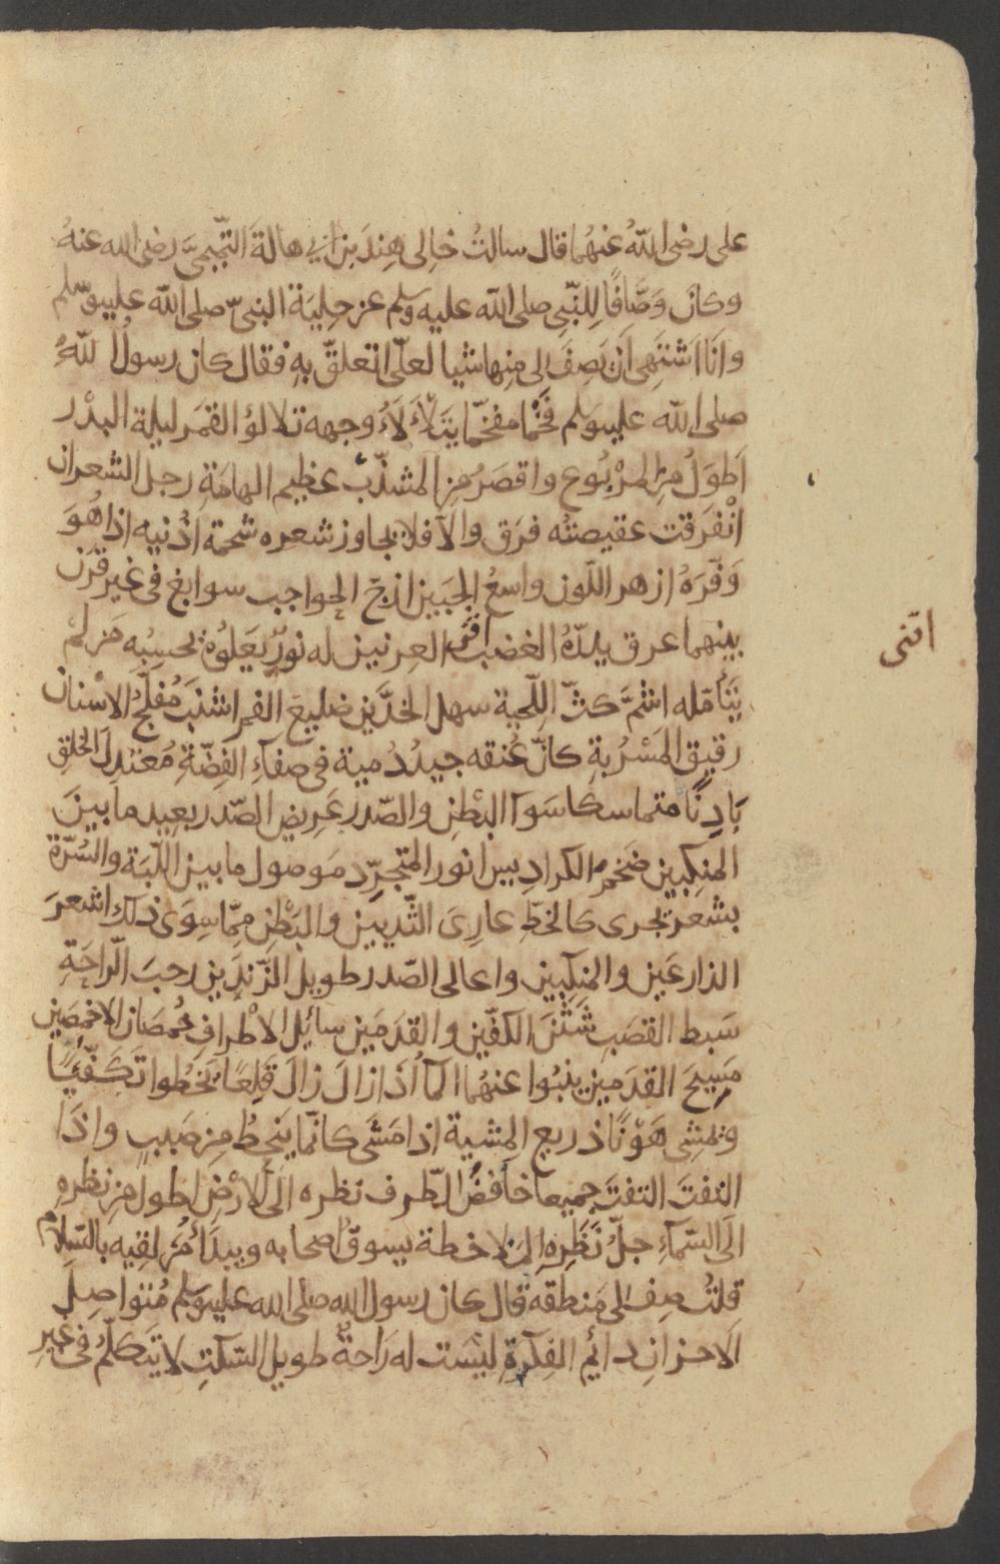 على رضى اللّهُ عنهُما قال سالتُ خالى هِندَ بن ابى هالةَ التّميمىَّ رضى الله عنهُ
وكانَ وَصَّافًا لِلنّبِى صلى اللّه عليه وسلم عن حِليَة النبىّ صلى اللّه عليه وسلم
وانَا اَشتَهِى اَن يَصِفَ لى مِنها شيا لعلّى اتعلقّ بهِ فقال كان رسولُ اللّهُ
صلى اللّه عليه وسلم فَخْمًا مفخّمًا يَتَلَأْلَأُ وجهه تلالؤ القمَر ليلة البدْر
اَطوَلُ مِن المرْبُوع واقصَرُ مِن المشذّب عظيم الهامَةِ رجل الشعر ان
انْفرَقت عقيصتُه فرَق والّا فلا يجاوز شعره شحمة اذُنيه اذا هُوَ
وَفّرَهُ ازهر اللّون واسعُ الجَبَين ازجّ الحواجب سوابغ فى غير قَرَن
بينهما عرق يدرّهُ الغضب اقنى العرنين له نورٌ يَعَلوُهُ يحسِبُه مَن لمْ
يَتَأمّله اشمَّ كثّ اللّحية سهل الخدَّين ضليعَ الفم اشنَبَ مُفلّجَ الاسْنان
رقيق المَسْرُبةِ كانّ عُنقه جيدُ دُمية فى صفآءِ الفِضّةِ مُعتدِلَ الخلقِ
بَادِنًا متماسكا سَوآ البَطنِ والصّدر عَرِيض الصّدر بعيد ما بينَ
المنكِبين ضَخمَ الكراديس انور المتجرِّد مَوصول ما بين اللّبَة والسُرّة
بشعر يجرى كالخطّ عارِىَ الثّديين والبَطْنِ ممّا سِوَى ذلك اشعرَ
الذارعَين والمنكِبين واعالى الصّدر طويل الزّندَين رحبَ الرّاحَةِ
سَبط القصَبِ شَثْنَ الكفّين والقدَمَين سائِل الاطرافِ خُمصَان الاخمَصَين
مَسِيحَ القدَمين ينبُوا عنهُما المآ اذا زالَ زالَ قَلِعًا يَخطُوا تَكَفِّيًا
ويمشى هَوْنًا ذريع المِشية اذا مَشَى كانّما يَنحطُ مِن صَبَبٍ واذَا
التفتَ التفتَ جميعا خافضُ الطّرف نظره الى الارْضِ اطول مِن نظرهِ
الَى السّمآءِ جلُّ نَظَرِهِ المَلاحظة يسوق اصحابه ويبدَأُ مَن لقيه بالسّلام
قلتُ صف لى مَنطقه قال كان رسول الله صلى الله عليه وسلم مُتواصِل
الَاحزان دائِم الفِكرَةِ ليْسَت له رَاحةٌ طويل السّكت لا يَتكلّمُ فى غيرِ